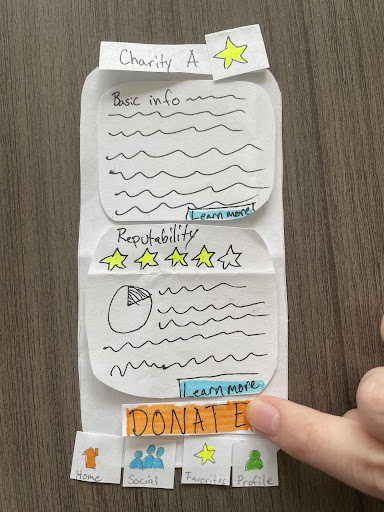 Charity A
Basic info
Learn more
Reputability
Learn more
DONATE
Home Social Favorites Profile